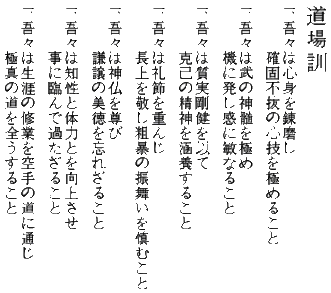 道場訓
一、吾々は心身を錬磨し
確固不抜の心技を極めること
一、吾々は武の神髄を極め
機に発し感に敏なること
一、吾々は質実剛健を以て
克己の精神を涵養すること
一、吾々は礼節を重んじ
長上を敬し粗暴の振舞いを慎むこと
一、吾々は神仏を尊び
謙譲の美徳を忘れざること
一、吾々は知性と体力とを向上させ
事に臨んで過たざること
一、吾々は生涯の修業を空手の道に通じ
極真の道を全うすること